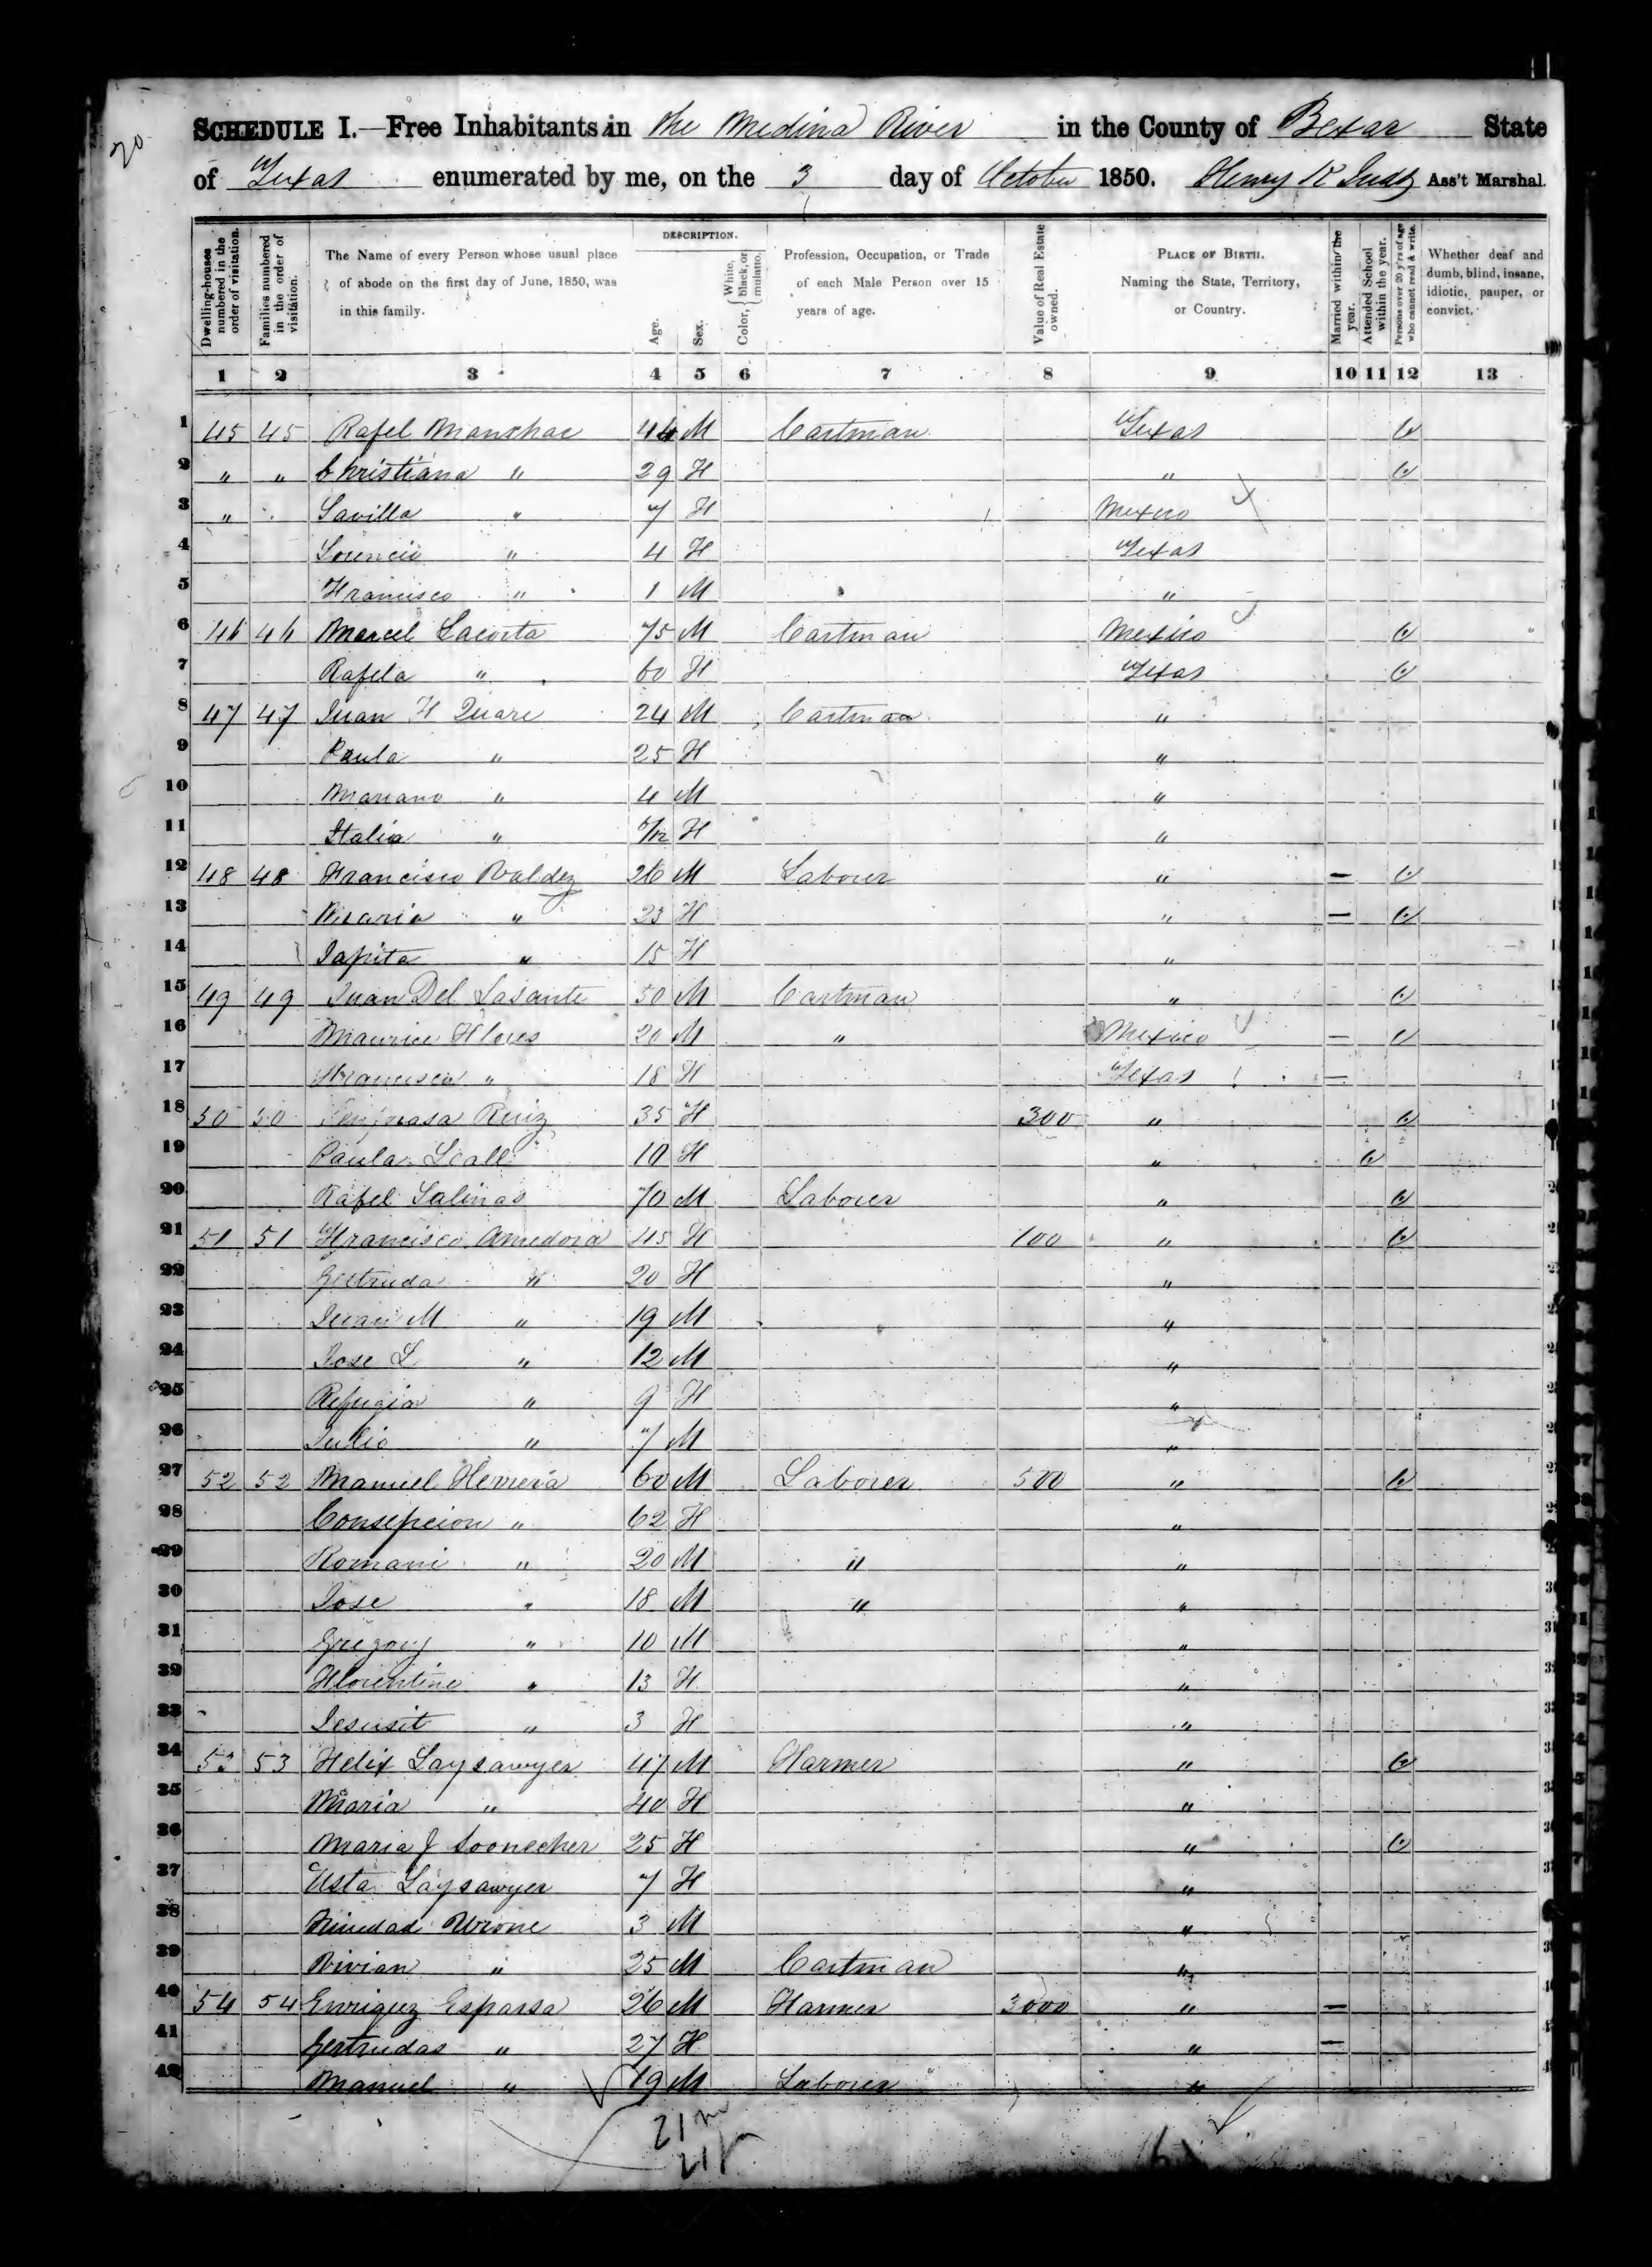 20
SCHEDULE I.—Free Inhabitants in the Medina River in the County of Bexar State
of Texas enumerated by me, on the 3 day of October 1850. Henry K Judz Ass't Marshal.
Dwelling-houses numbered in the order of visitation.
Families numbered in the order of visitation.
The Name of every Person whose usual place of abode on the first day of June, 1850, was in this family.
DESCRIPTION.
Age.
Sex.
Color, { White, black, or mulatto.
Profession, Occupation, or Trade of each Male Person over 15 years of age.
Value of Real Estate owned.
PLACE OF BIRTH. Naming the State, Territory, or Country.
Married within the year.
Attended School within the year.
Persons over 20 y'rs of age who cannot read & write.
Whether deaf and dumb, blind, insane, idiotic, pauper, or convict.
1 2 3 4 5 6 7 8 9 10 11 12 13
1 45 45 Rafel Manchac 44 M Cartman Texas
2 " " Christiana " 29 F "
3 " Savilla " 7 F Mexico
4 " 4 F Texas
5 Francisco " 1 M "
6 46 46 Marcel Lacosta 75 M Cartman Mexico
7 Rafela " 60 F Texas
8 47 47 Juan F Quare 24 M Cartman "
9 Paula " 25 F "
10 Mariano " 4 M "
11 Italia " /12 F "
12 48 48 Francisco Valdez 26 M Laborer " —
13 " 23 F " —
14 Japita " 15 F "
15 49 49 Juan Del Lasante 50 M Cartman "
16 Maurice Flores 20 M " Mexico —
17 Francisca " 18 F Texas —
18 50 50 Ruiz 35 F 300 "
19 Paula Leall 10 F "
20 Rafel Salinas 70 M Laborer "
21 51 51 Francisco Amedora 45 F 100 "
22 Gertruda " 20 F "
23 Juan M " 19 M "
24 Jose L " 12 M "
25 Refugia " 9 F "
26 Julio " 7 M "
27 52 52 Manuel Herrera 60 M Laborer 500 "
28 Consepcion " 62 F "
29 Romani " 20 M " "
30 Jose " 18 M " "
31 Gregory " 10 M "
32 Florentino " 13 F "
33 Jesusit " 3 F "
34 53 53 Felix Laysawyer 47 M Farmer "
35 Maria " 40 F "
36 Maria J Soonecher 25 F "
37 Usta Laysawyer 7 F "
38 Trinedad Urone 3 M "
39 Vivian " 25 M Cartman "
40 54 54 Enriquez Esparsa 26 M Farmer 3000 " —
41 Gertrudas " 27 F " —
42 Manuel " 19 M Laborer "
21 m
21 f